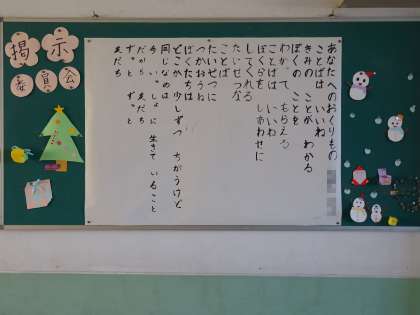 掲示
委員会
あなたへのおくりもの
ことばは いいね
きみの ことが わかる
ぼくの ことを
わかって もらえる
ことばは いいね
ぼくらを しあわせに
してくれる
たいせつな
ことば
たいせつに
つかおうね
ぼくたちは
どこか 少しずつ ちがうけど
同じなのは
今、いっしょに 生きて いること
だから 友だち
ずっと ずっと
友だち